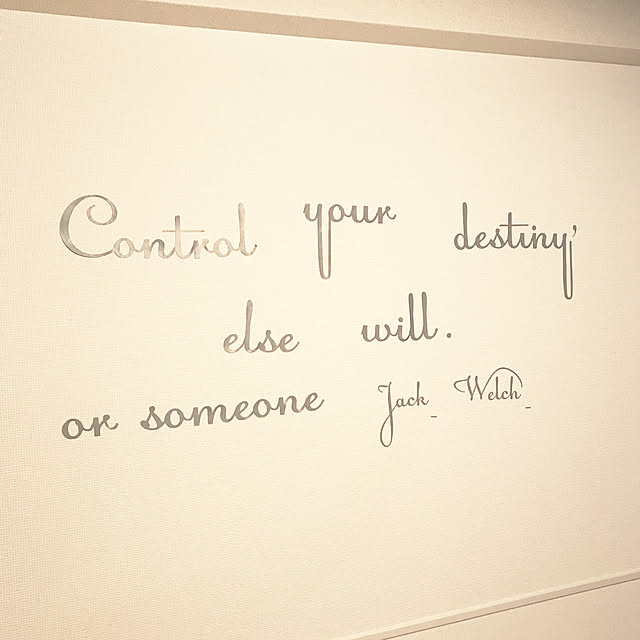 Control your destiny,
else will.
or someone Jack_ Welch_